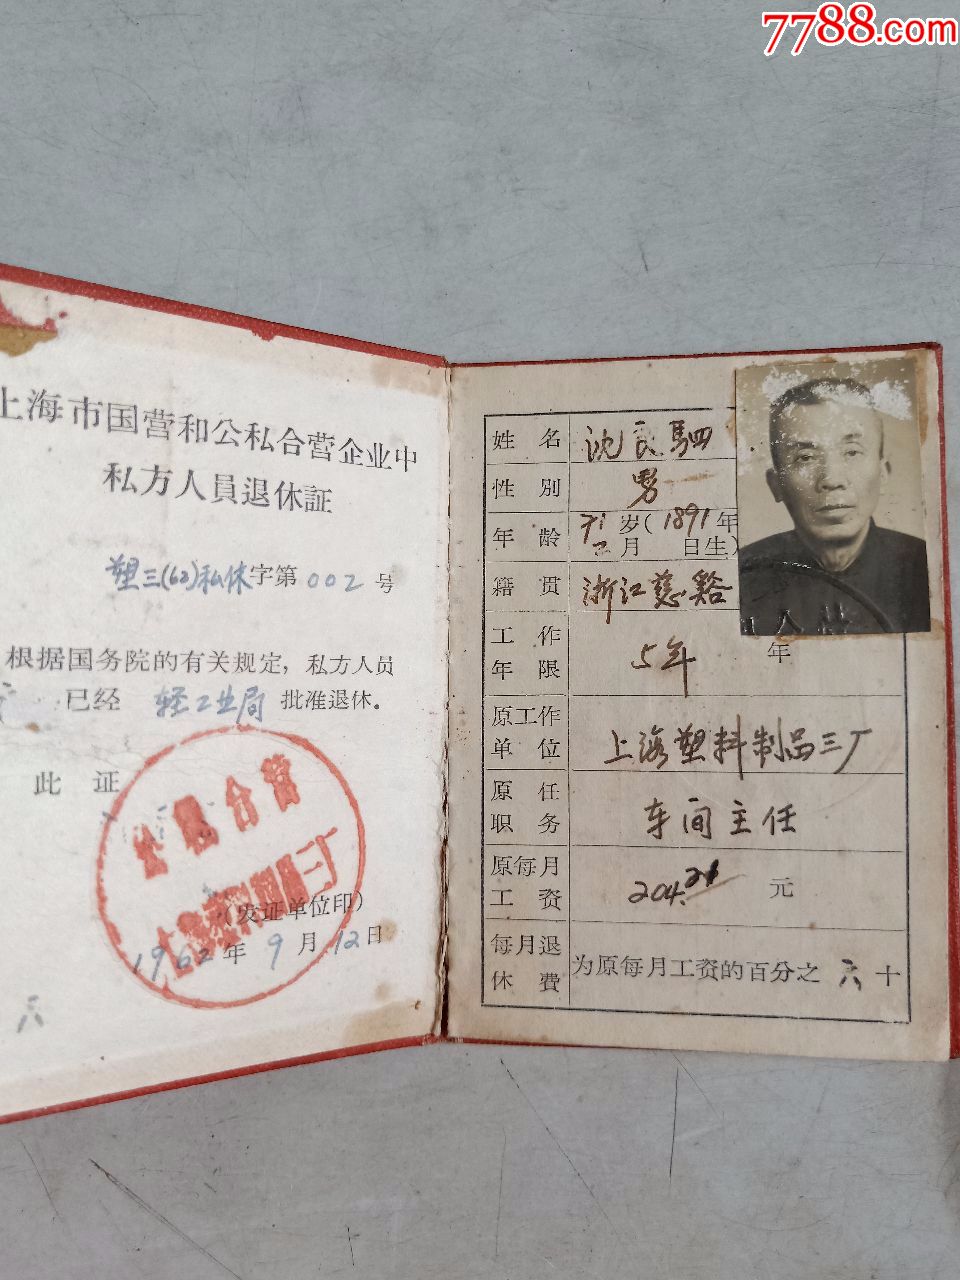 7788.com
上海市国营和公私合营企业中
私方人員退休証
塑三(62)私休字第002号
根据国务院的有关规定，私方人员
已经 轻工业局 批准退休。
此 证
公私合营
上海塑料制品三厂
(发证单位印)
1962年9月12日
六
姓 名 沈良駟
性 別 男
年 龄 71岁(1891年
二月 日生)
籍 贯 浙江慈谿
工 作
年 限 5年 年
原工作
单 位 上海塑料制品三厂
原 任
职 务 车间主任
原每月
工 资 204.21 元
每月退
休 費 为原每月工资的百分之 六十